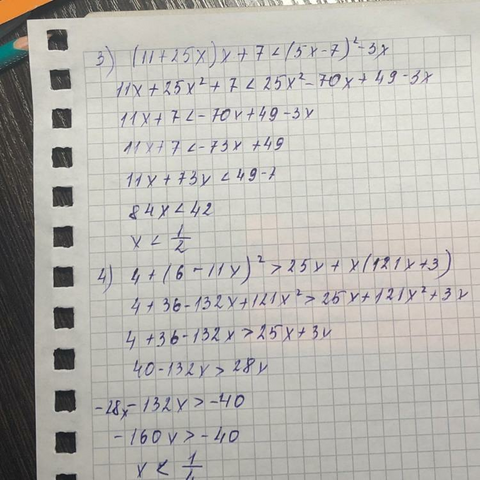 3) (11+25x)x+7<(5x-7)²-3x
11x+25x²+7<25x²-70x+49-3x
11x+7<-70x+49-3x
11x+7<-73x+49
11x+73x<49-7
84x<42
x<1/2
4) 4+(6-11x)²>25x+x(121x+3)
4+36-132x+121x²>25x+121x²+3x
4+36-132x>25x+3x
40-132x>28x
-28x-132x>-40
-160x>-40
x<1/4